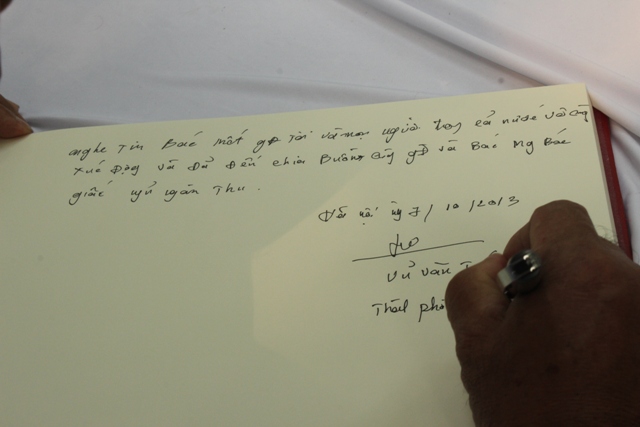 Nghe Tin Bác mất gđ Tôi và mọi người trong cả nước vô cùng
xúc động và đã đến chia Buồn cùng gđ và Bác Mg Bác
giấc ngủ ngàn Thu.
Hà nội ngày 7/10/2013
Vũ Văn